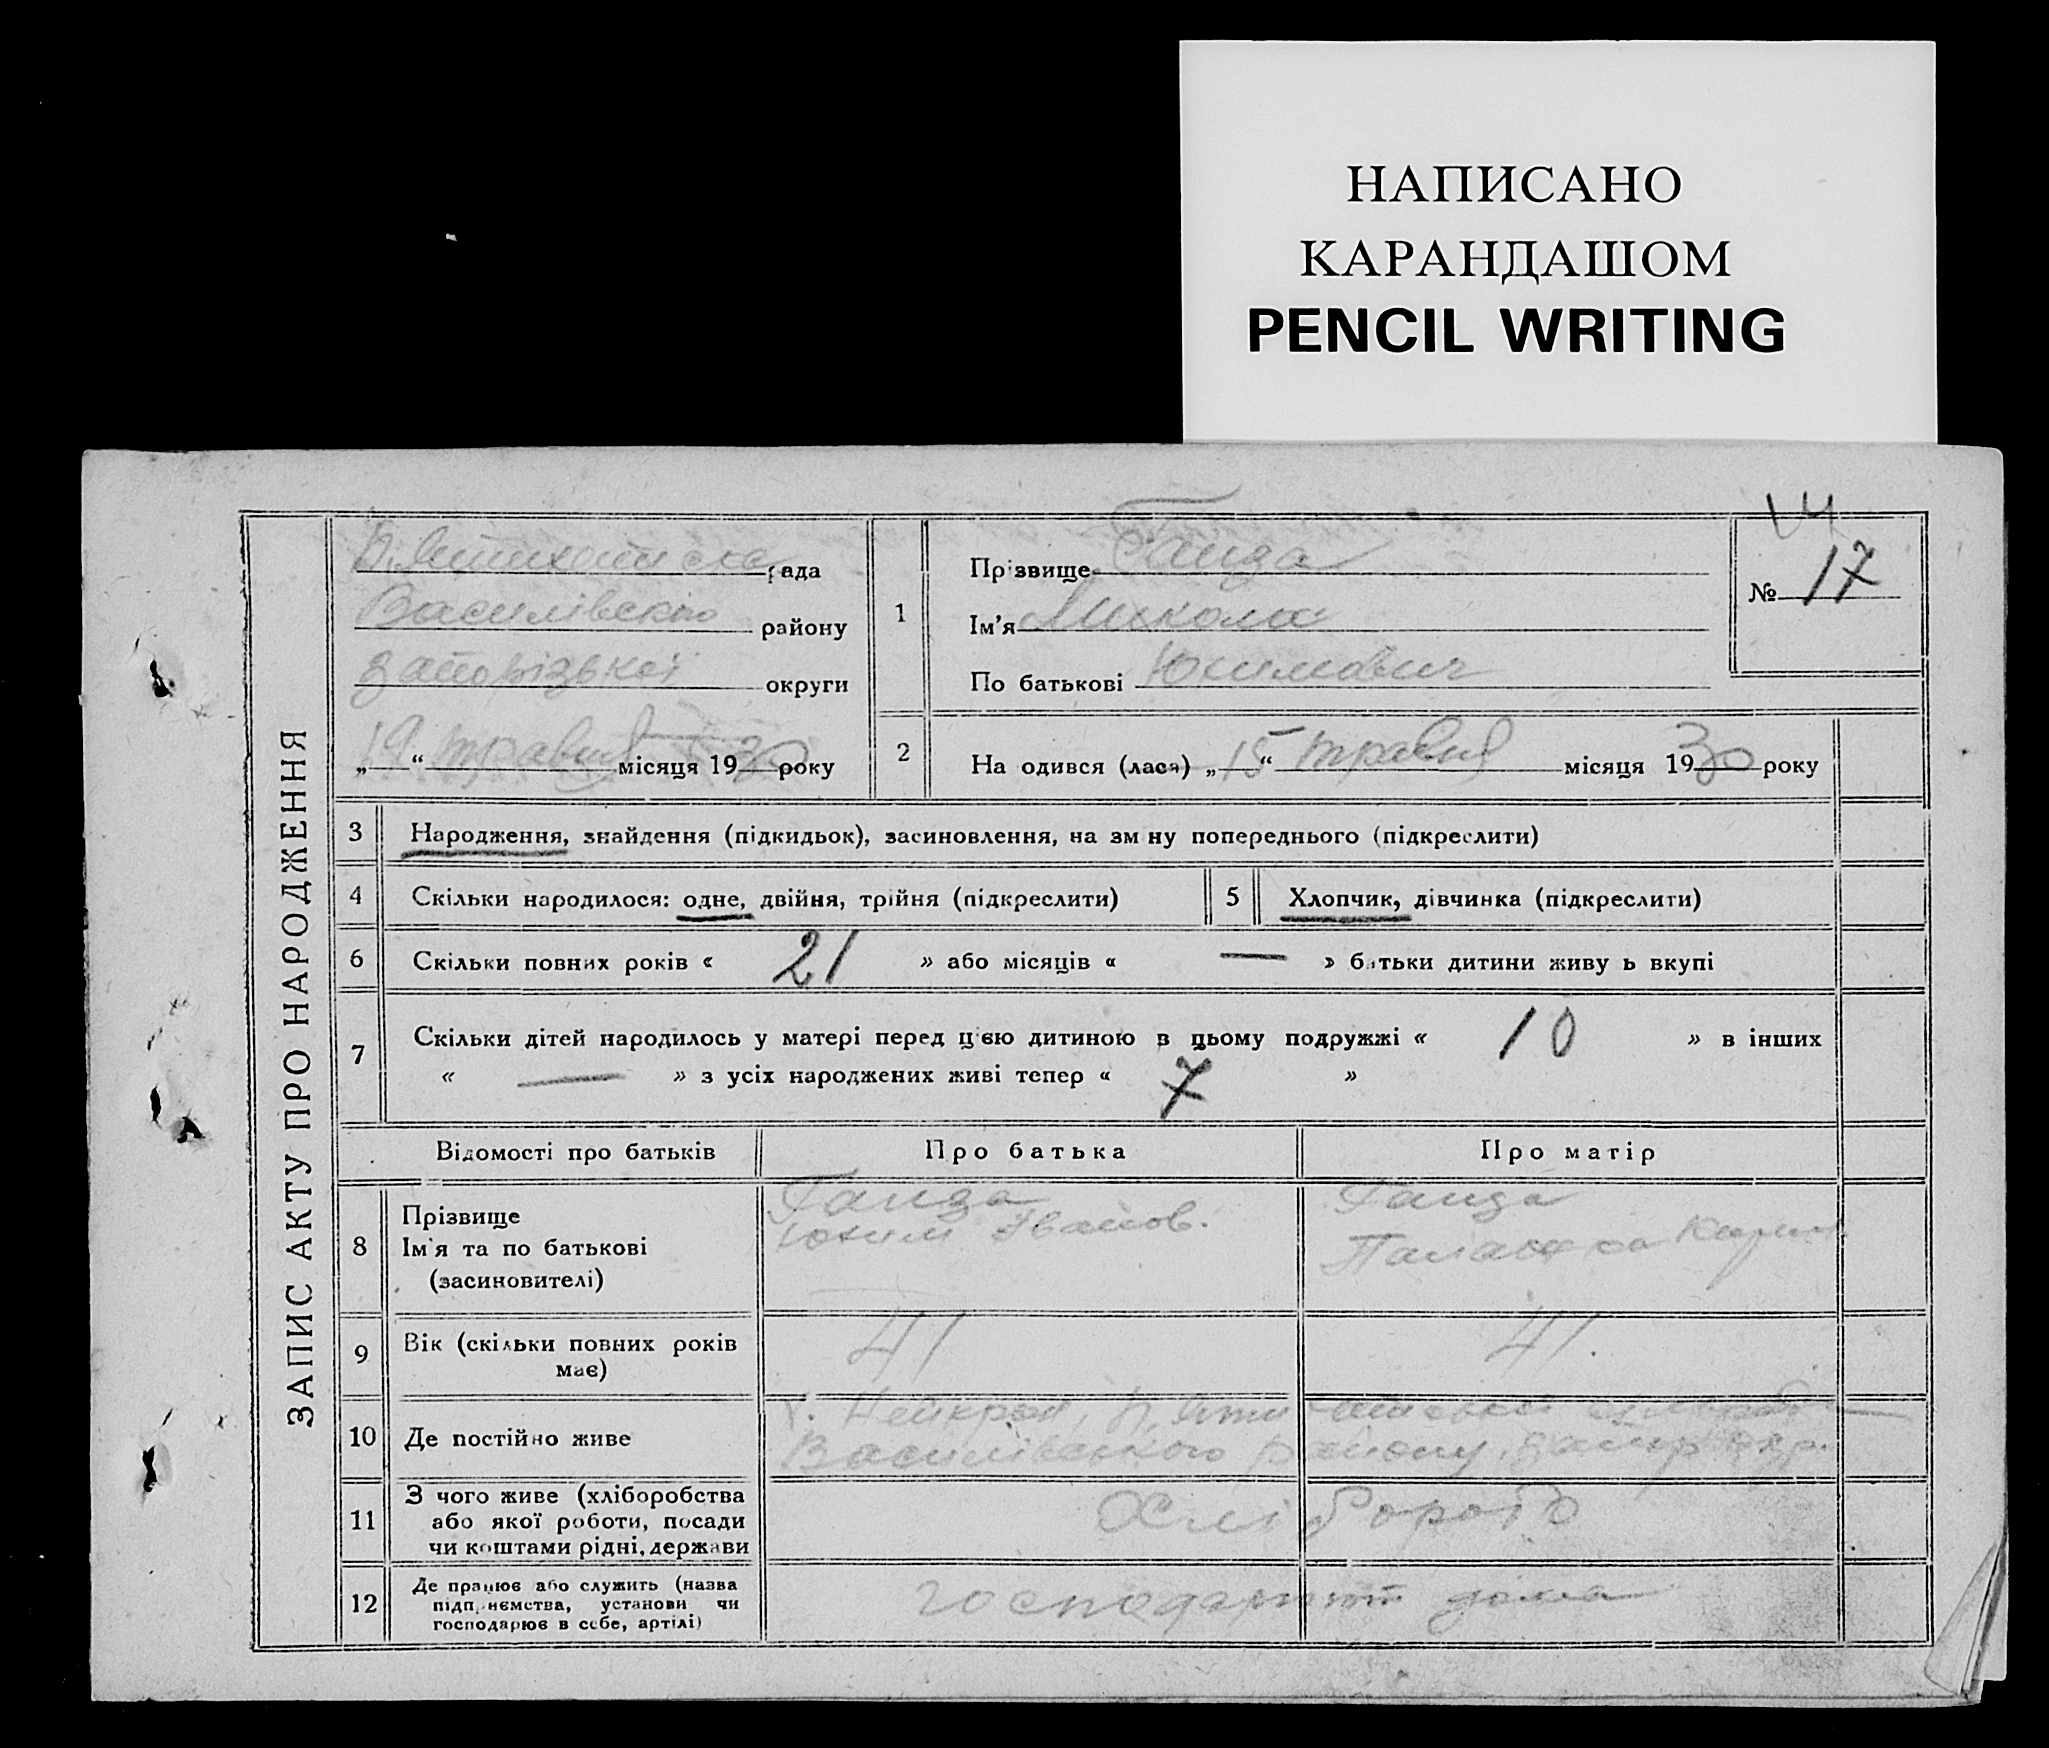 НАПИСАНО
КАРАНДАШОМ
PENCIL WRITING
14
ЗАПИС АКТУ ПРО НАРОДЖЕННЯ
рада
Василівсько району
Запорізької округи
„19“ травня місяця 1930 року
1
Прізвище Ганза
Ім'я Микола
По батькові Юхимович
№ 17
2
На одився (лася) „15“ травня місяця 1930 року
3 Народження, знайдення (підкидьок), засиновлення, на зм ну попереднього (підкреслити)
4 Скільки народилося: одне, двійня, трійня (підкреслити)
5 Хлопчик, дівчинка (підкреслити)
6 Скільки повних років « 21 » або місяців « — » батьки дитини живу ь вкупі
7 Скільки дітей народилось у матері перед цією дитиною в цьому подружжі « 10 » в інших
« — » з усіх народжених живі тепер « 7 »
Відомості про батьків Про батька Про матір
8 Прізвище
Ім'я та по батькові
(засиновителі)
Ганза
Юхим Іванов.
Ганза
9 Вік (скільки повних років
має)
41
41.
10 Де постійно живе
Василівського району, Запор окр.
11 З чого живе (хліборобства
або якої роботи, посади
чи коштами рідні, держави
Хлібороб
12 Де працює або служить (назва
підприємства, установи чи
господарює в себе, артілі)
господарюют дома